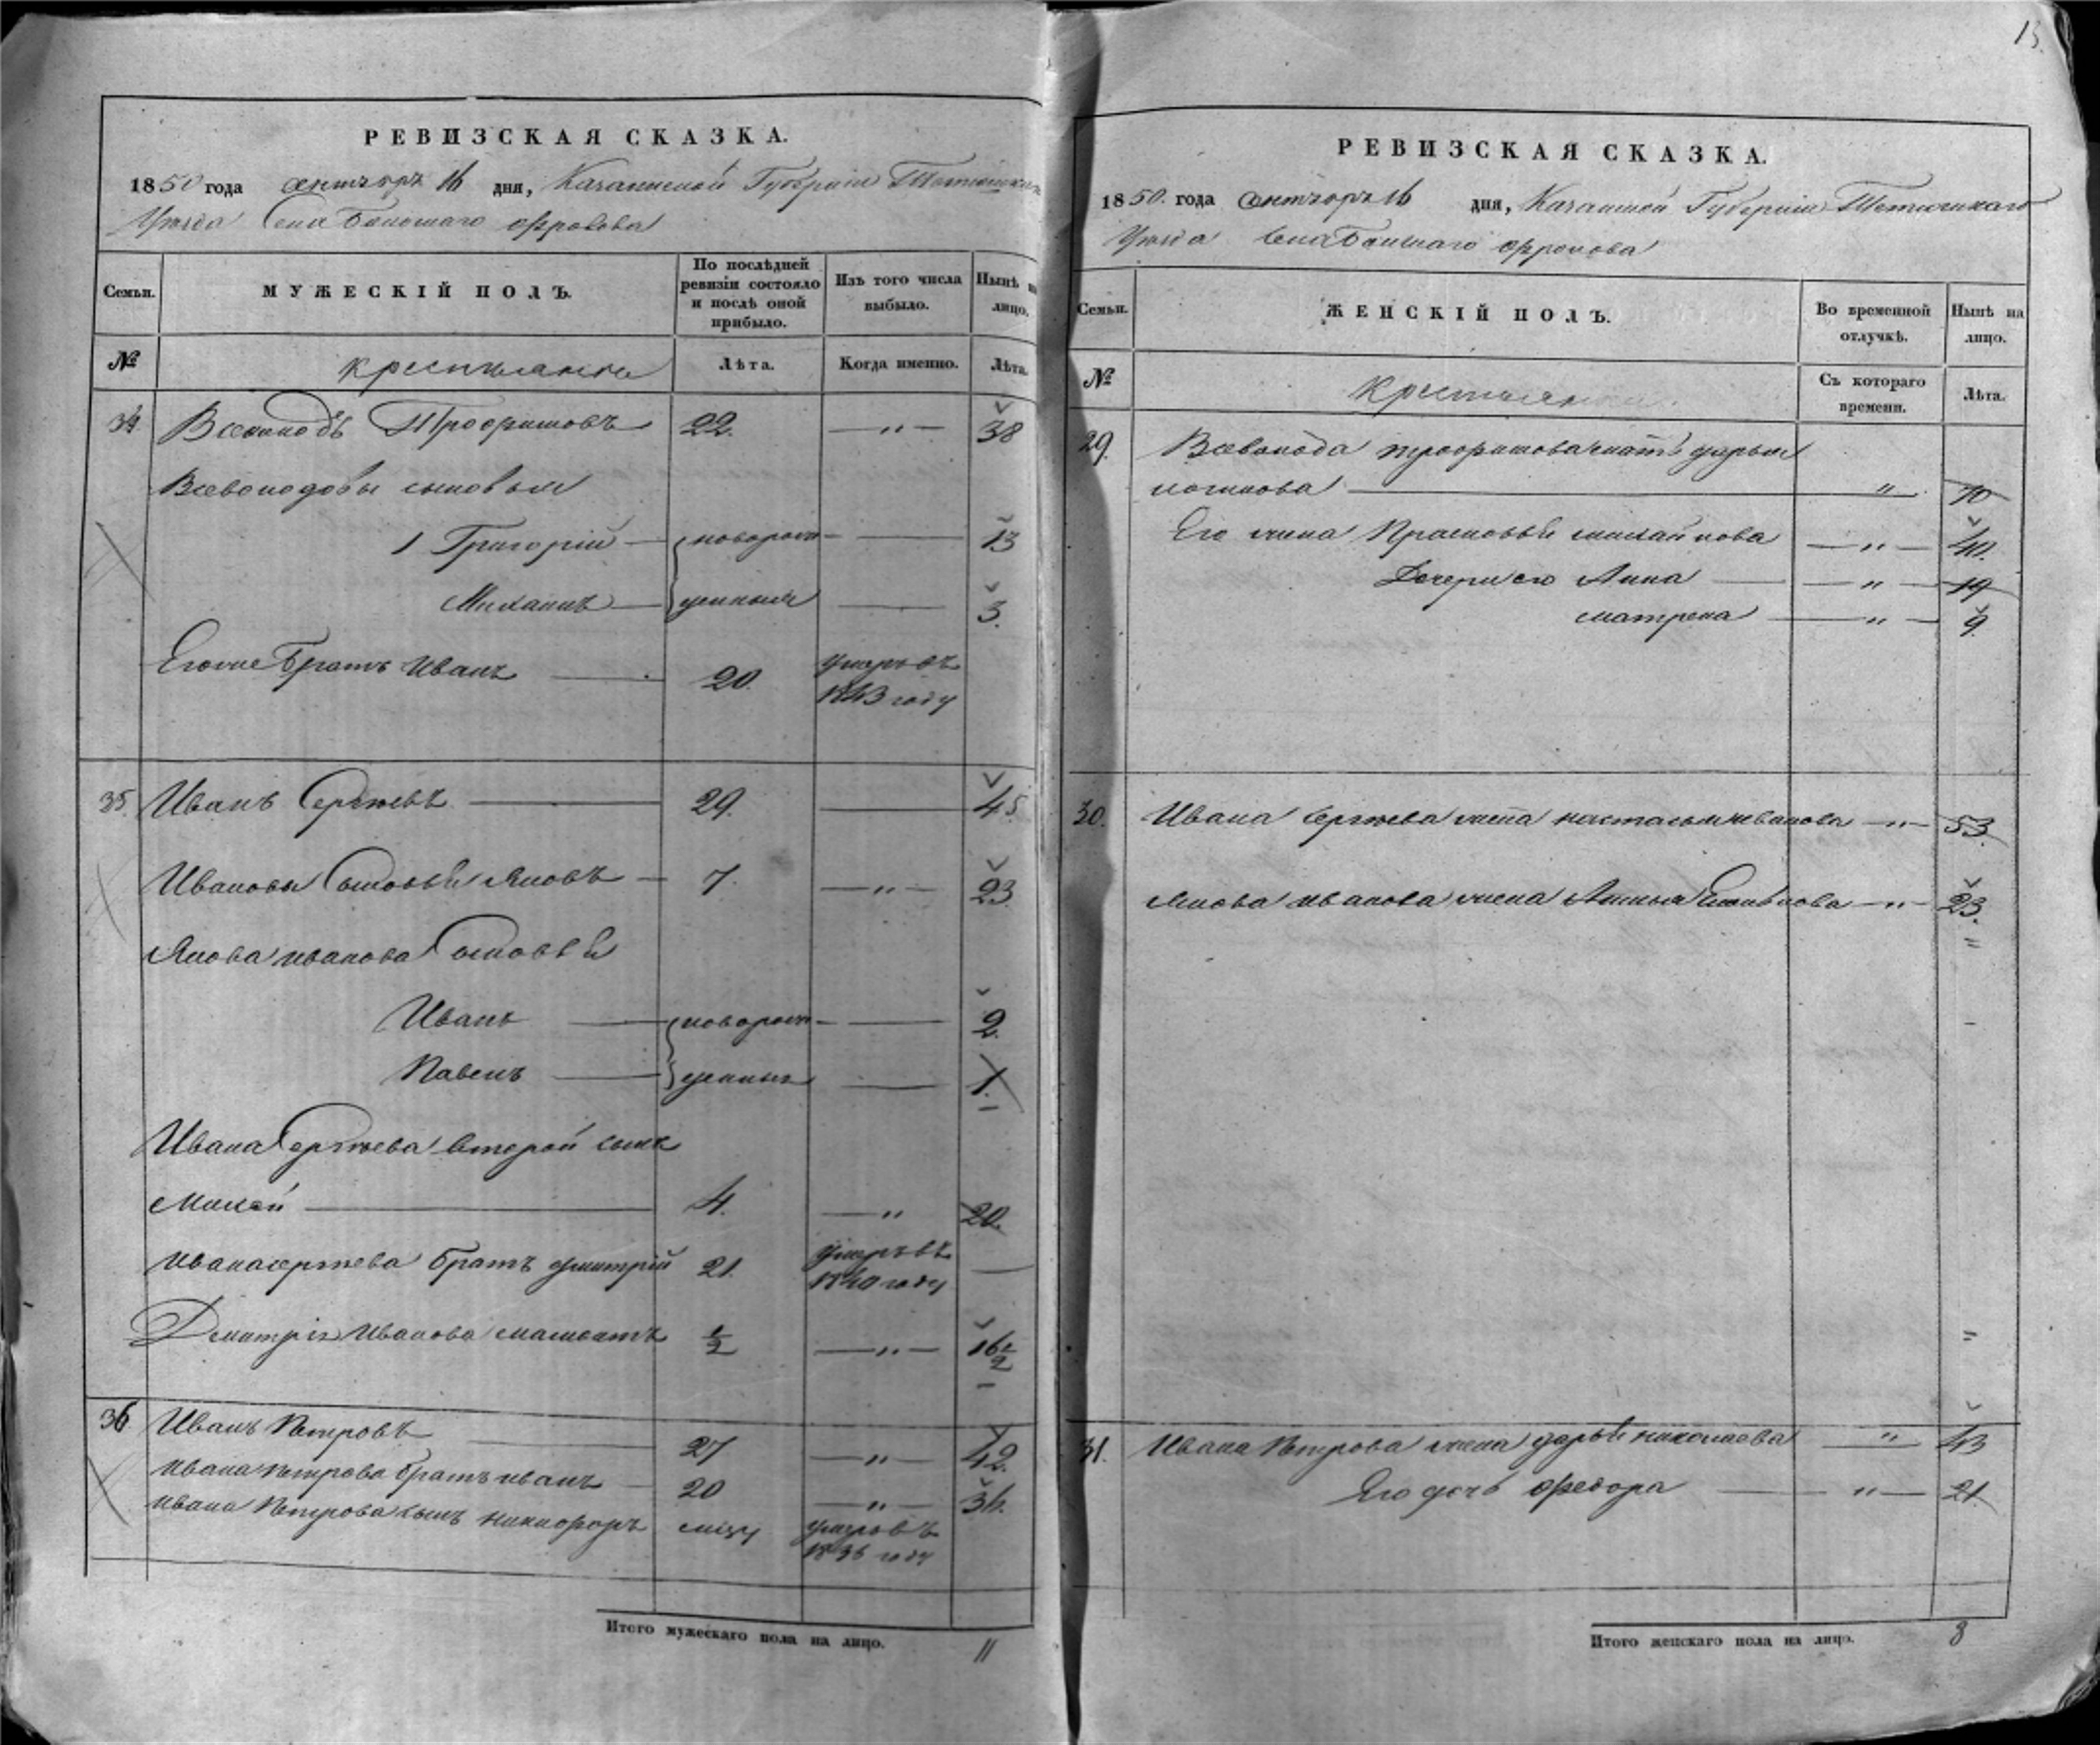 13.
РЕВИЗСКАЯ СКАЗКА.
1850 года октября 16 дня, Казанской Губернии Тетюшскаго
Уѣзда Села Большаго Фролова
Семьи. МУЖЕСКІЙ ПОЛЪ. По послѣдней ревизіи состояло и послѣ оной прибыло. Изъ того числа выбыло. Нынѣ на лицо.
№ крестьянъ Лѣта. Когда именно. Лѣта.
34 Всеволодъ Трофимовъ 22. — " — 38
Всеволодовы сыновья
1 Григорій — новорож- — 13
Михаилъ — денныя — 3.
Его же братъ Иванъ — 20. умеръ въ
1843 году
35. Иванъ Сергѣевъ — 29. — 45.
Ивановы сыновьи Яковъ — 7. — " — 23.
Якова Иванова сыновьи
Иванъ — новорож- — 2.
Павелъ — денныя — 1.
Ивана Сергѣева второй сынъ
Макей — 4. — " 20.
Ивана Сергѣева братъ Дмитрій 21. умеръ въ —
1840 году
Дмитрія Иванова 1/2 — " — 16 1/2
36 Иванъ Петровъ — 27 — " — 42.
Ивана Петрова братъ Иванъ — 20 — " 36.
Ивана Петрова сынъ Никифоръ умеръ въ
1836 году
Итого мужескаго пола на лицо. 11
РЕВИЗСКАЯ СКАЗКА.
1850. года октября 16 дня, Казанской Губерніи Тетюшскаго
Уѣзда Села Большаго Фролова
Семьи. ЖЕНСКІЙ ПОЛЪ. Во временной отлучкѣ. Нынѣ на лицо.
№ Крестьянъ Съ котораго времени. Лѣта.
29. Всеволода Трофимова мать Дарья
Логинова — " 70
Его жена Прасковьи Михайлова — " — 40.
Дочери его Анна — " — 19
Матрена — " — 9.
30. Ивана Сергѣева жена Настасья Иванова — " — 53.
Якова Иванова жена Анны — " — 23.
31. Ивана Петрова жена Дарьи Николаева — " — 43
Его дочь Федора — " — 21.
Итого женскаго пола на лицо. 8